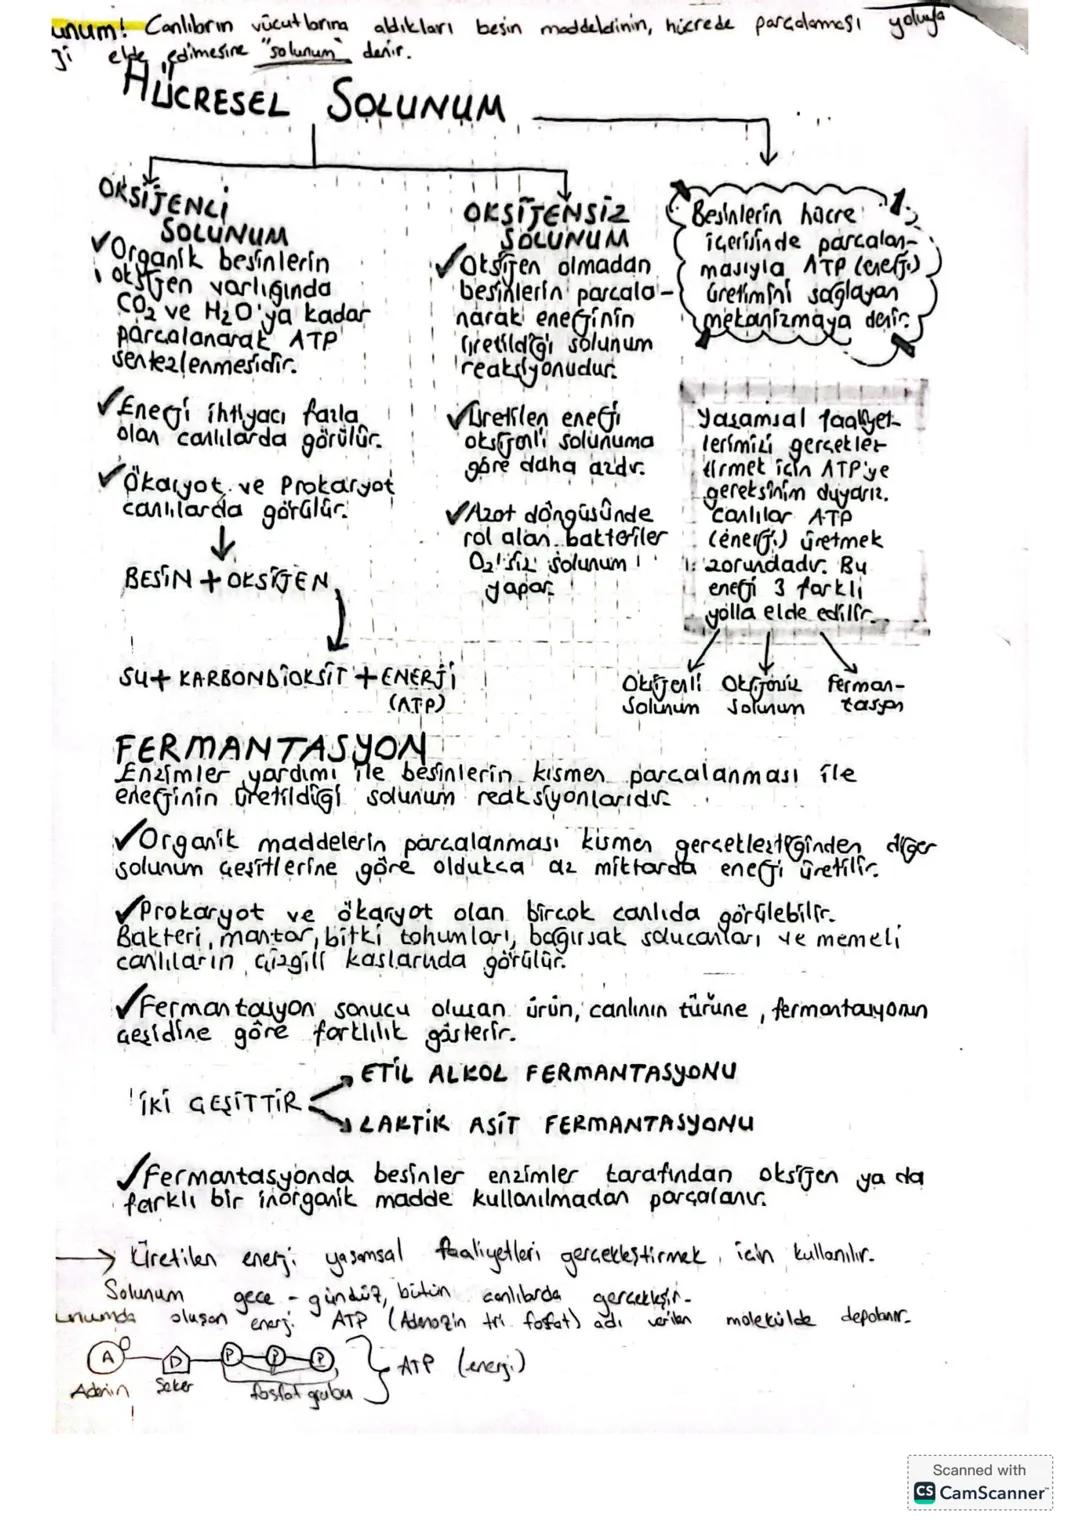 unum! Canlıların vücutlarına aldıkları besin maddelerinin, hücrede parçalaması yoluyla
ji elde edilmesine "solunum" denir.
HÜCRESEL SOLUNUM
OKSİJENLİ
SOLUNUM
✓Organik besinlerin
oksijen varlığında
CO2 ve H2O'ya kadar
parçalanarak ATP
sentezlenmesidir.
✓Enerji ihtiyacı fazla
olan canlılarda görülür.
✓Ökaryot ve Prokaryot
canlılarda görülür.
BESİN + OKSİJEN
SU + KARBONDİOKSİT + ENERJİ
(ATP)
OKSİJENSİZ
SOLUNUM
✓Oksijen olmadan
besinlerin parçala-
narak enerjinin
üretildiği solunum
reaksiyonudur.
✓Üretilen enerji
oksijenli solunuma
göre daha azdır.
✓Azot döngüsünde
rol alan bakteriler
O2'siz solunum
yapar.
Besinlerin hücre
içerisinde parçalan-
masıyla ATP (enerji)
üretimini sağlayan
mekanizmaya denir.
Yaşamsal faaliyet-
lerimizi gerçekleş
tirmek için ATP'ye
gereksinim duyarız.
Canlılar ATP
(enerji) üretmek
zorundadır. Bu
enerji 3 farklı
yolla elde edilir.
Oksijenli Oksijensiz Ferman-
Solunum Solunum tasyon
FERMANTASYON
Enzimler yardımı ile besinlerin kısmen parçalanması ile
enerjinin üretildiği solunum reaksiyonlarıdır.
✓Organik maddelerin parçalanması kısmen gerçekleştiğinden diğer
solunum çeşitlerine göre oldukça az miktarda enerji üretilir.
✓Prokaryot ve ökaryot olan birçok canlıda görülebilir.
Bakteri, mantar, bitki tohumları, bağırsak solucanları ve memeli
canlıların çizgili kaslarında görülür.
✓Fermantasyon sonucu oluşan ürün, canlının türüne, fermantasyonun
çeşidine göre farklılık gösterir.
İKİ ÇEŞİTTİR
ETİL ALKOL FERMANTASYONU
LAKTİK ASİT FERMANTASYONU
✓Fermantasyonda besinler enzimler tarafından oksijen ya da
farklı bir inorganik madde kullanılmadan parçalanır.
→ Üretilen enerji yaşamsal faaliyetleri gerçekleştirmek için kullanılır.
Solunum gece - gündüz, bütün canlılarda gerçekleşir.
unumda oluşan enerji ATP (Adenozin tri fosfat) adı verilen molekülde depolanır.
A D P P P ATP (enerji)
Adenin Şeker fosfat grubu
Scanned with
CS CamScanner